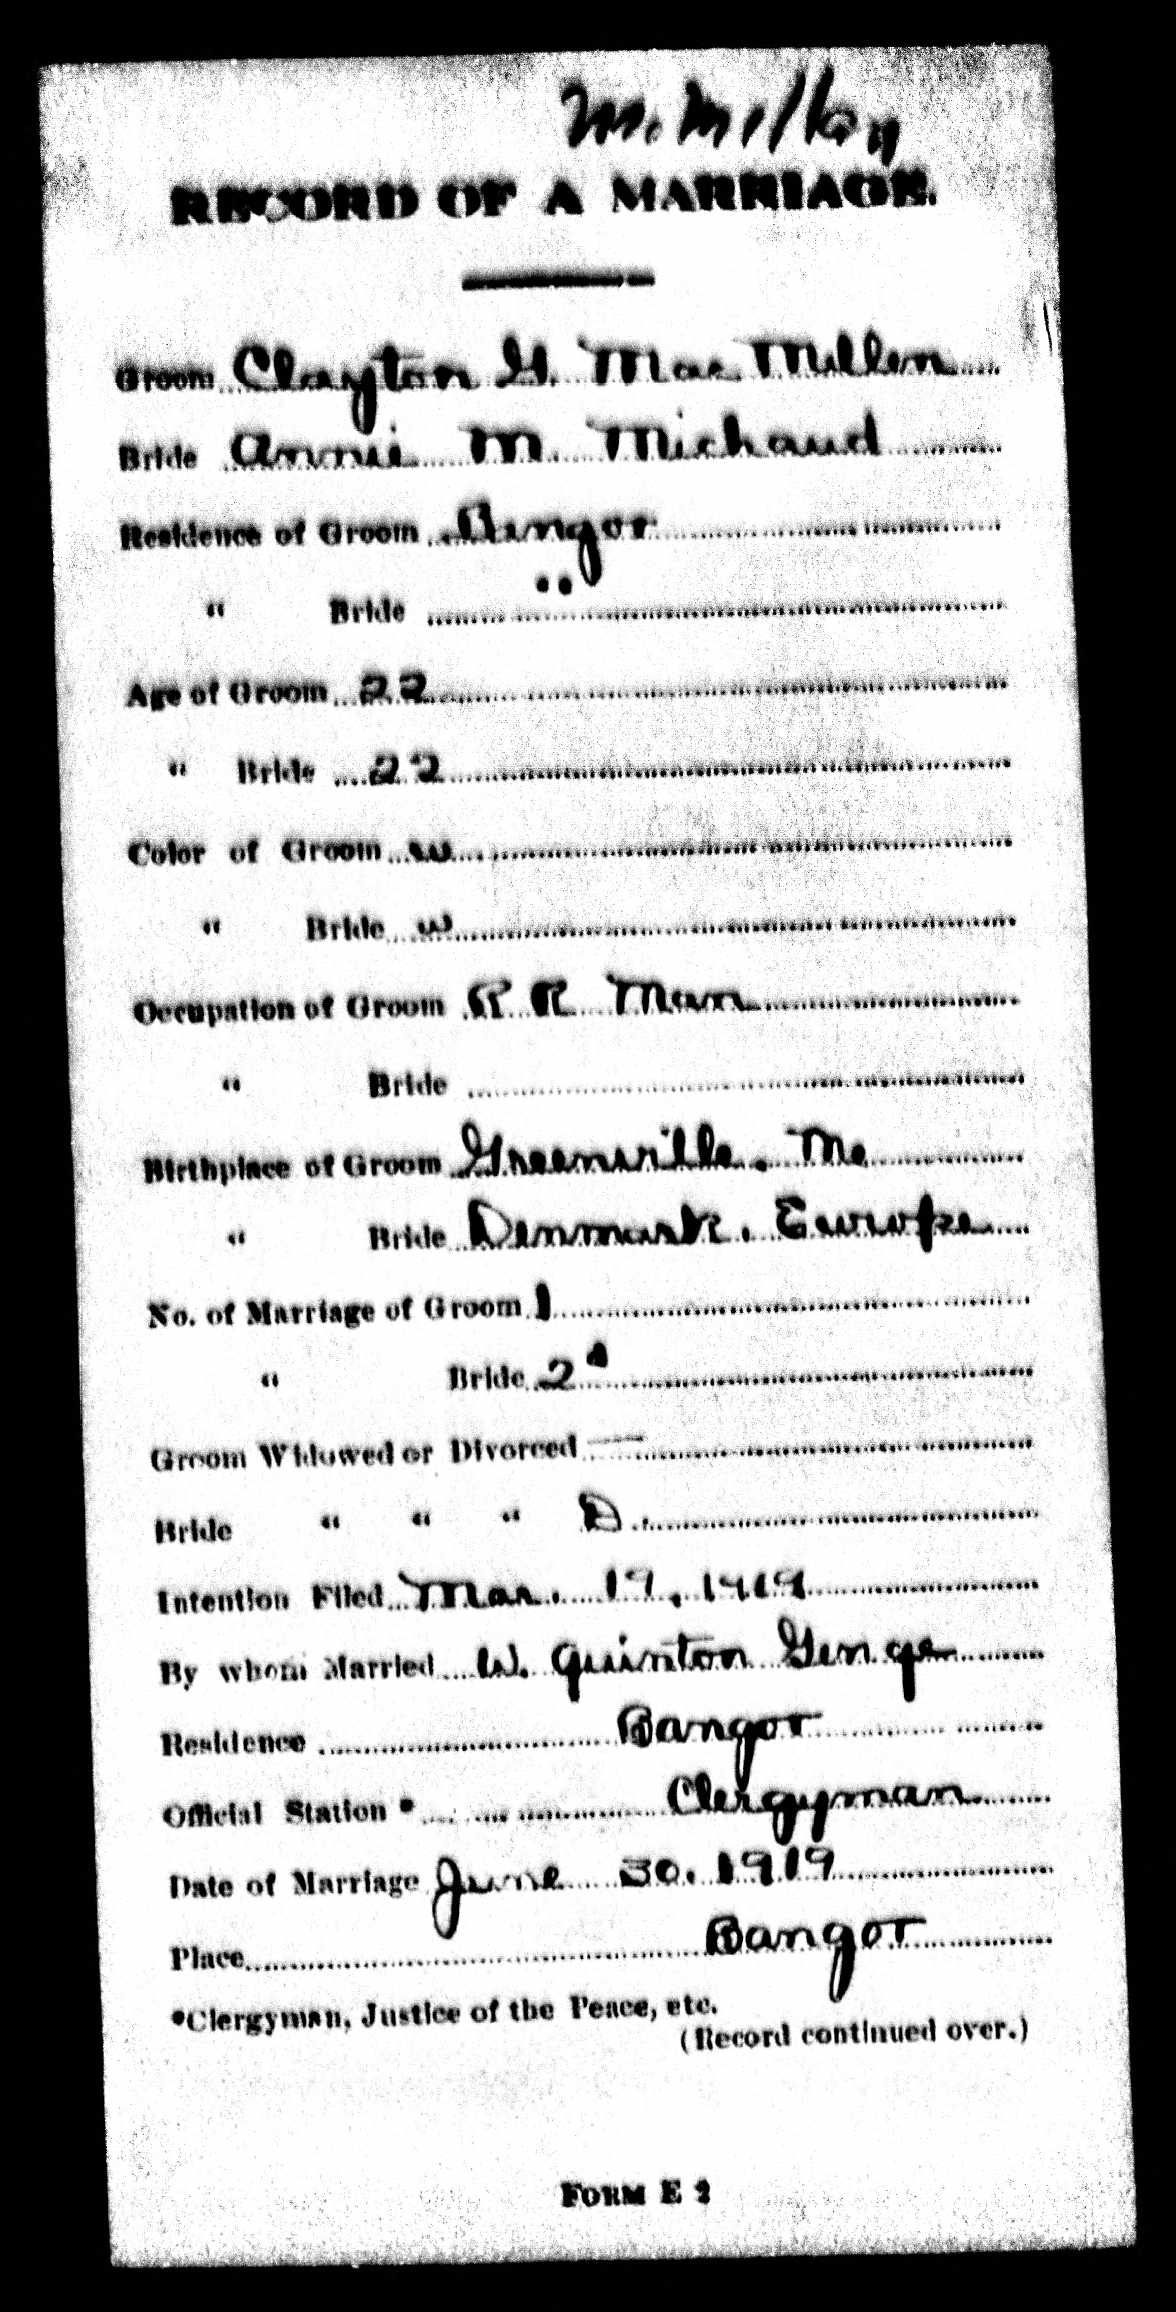 McMillan
RECORD OF A MARRIAGE.
Groom Clayton G. Mac Millen
Bride Annie M. Michaud
Residence of Groom Bangor
" Bride "
Age of Groom 22
" Bride 22
Color of Groom w
" Bride w
Occupation of Groom R R Man
" Bride
Birthplace of Groom Greenville, Me
" Bride Denmark, Europe
No. of Marriage of Groom 1
" Bride 2d
Groom Widowed or Divorced —
Bride " " " D.
Intention Filed Mar. 19, 1919
By whom Married W. Quinton Genge
Residence Bangor
Official Station * Clergyman
Date of Marriage June 30, 1919
Place Bangor
*Clergyman, Justice of the Peace, etc.
(Record continued over.)
FORM E 2